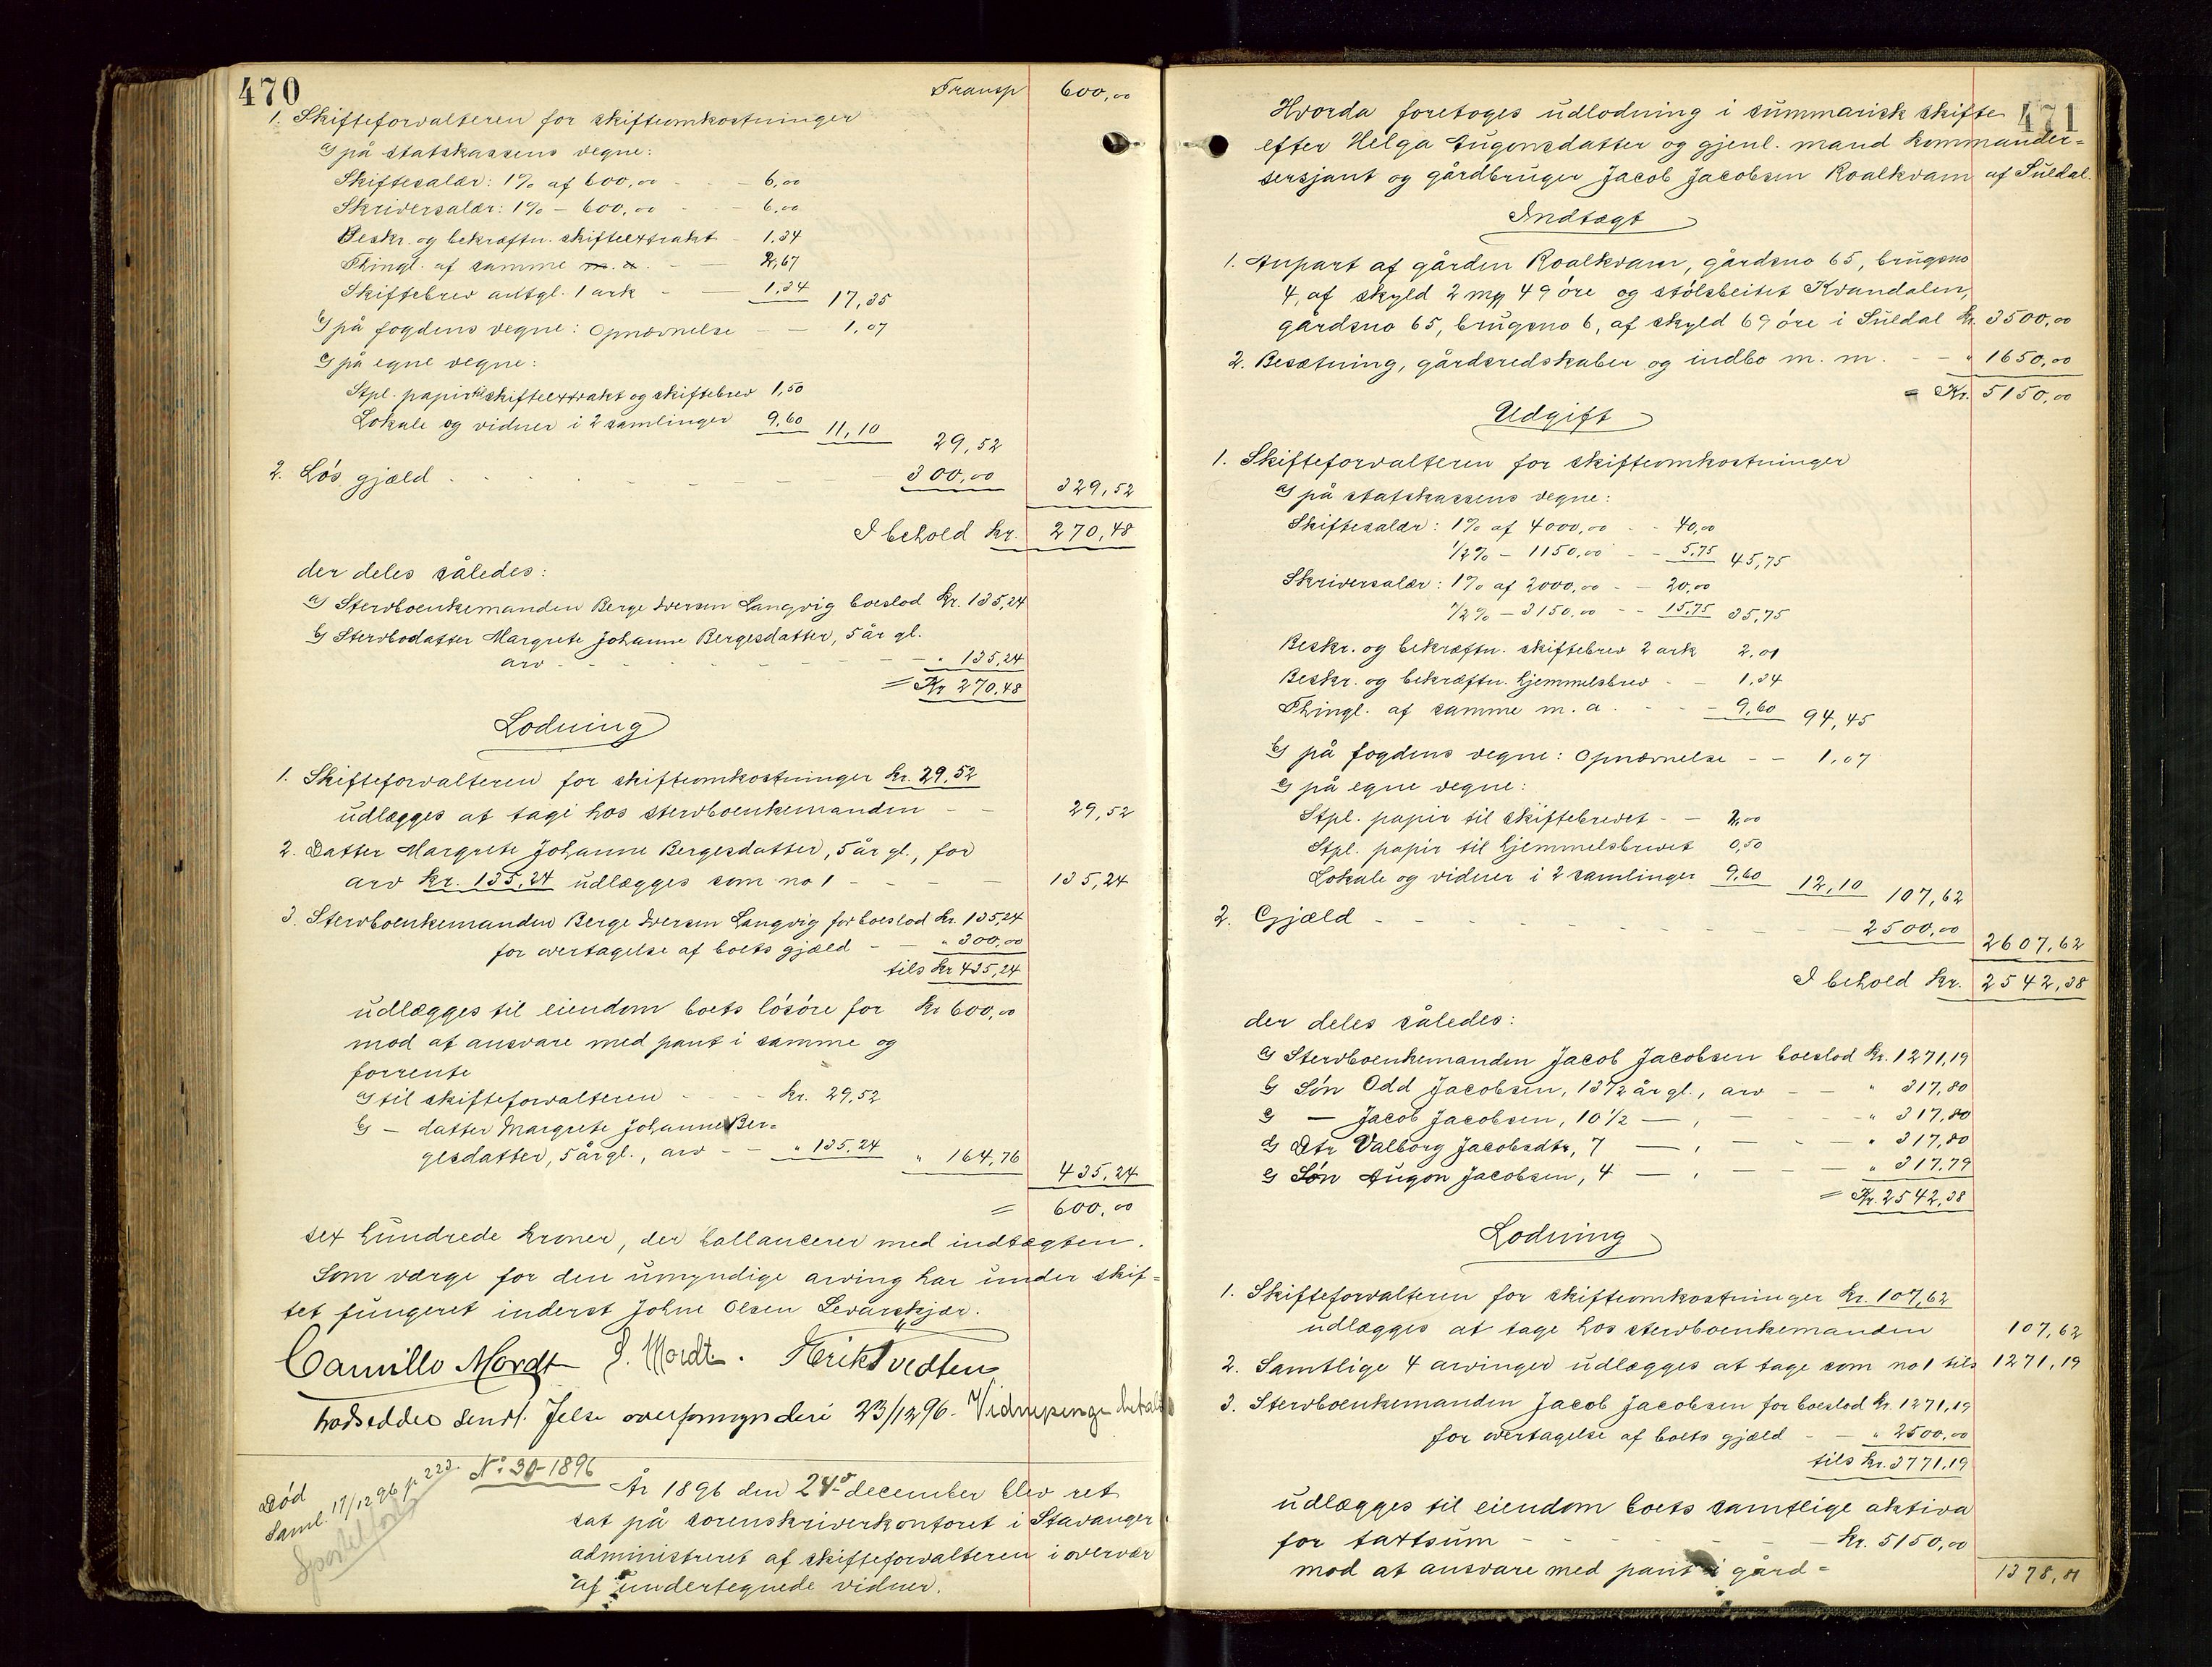 470
Transp 600,00
1. Skifteforvalteren for skifteomkostninger
a) på statskassens vegne:
Skiftesalær: 1% af 600,00 - - 6,00
Skriversalær: 1% - 600,00 - - 6,00
Beskr. og bekræftn. skifteextrakt - 1,34
Thingl. af samme m. a. - 2,67
Skiftebrev autgl. 1 ark - - 1,34 17,35
b) på fogdens vegne: Opnævnelse - - 1,07
c) på egne vegne:
Stpl. papir til skifteextrakt og skiftebrev 1,50
Lokale og vidner i 2 samlinger 9,60 11,10 29,52
2. Løs gjæld - - - - 300,00 329,52
I behold kr. 270,48
der deles således:
a) Stervboenkemanden Berge Iversen Langvig boeslod kr. 135,24
b) Stervbodatter Margrete Johanne Bergesdatter, 5 år gl.
arv - - - - " 135,24
= Kr 270,48
Lodning
1. Skifteforvalteren for skifteomkostninger kr. 29,52
udlægges at tage hos stervboenkemanden - - 29,52
2. Datter Margrete Johanne Bergesdatter, 5 år gl., for
arv kr. 135,24 udlægges som no 1 - - - 135,24
3. Stervboenkemanden Berge Iversen Langvig for boeslod kr. 135,24
for overtagelse af boets gjæld - - " 300,00
tils kr 435,24
udlægges til eiendom boets løsøre for kr 600,00
mod at ansvare med pant i samme og
forrente
a) til skifteforvalteren - - - kr. 29,52
b) - datter Margrete Johanne Ber=
gesdatter, 5 år gl., arv - - " 135,24 " 164,76 435,24
= 600,00
sex hundrede kroner, der ballancerer med indtægten.
Som værge for den umyndige arving har under skif=
tet fungeret inderst Johne Olsen Sevarskjær.
Camillo Mordt J. Mordt. Erik Tvedten
Lodseddel sendt Jelse overformynderi 23/12 96. Vidnepenge betalt
Død
Saml. 17/12 96 p 223.
No 30-1896
År 1896 den 24de december blev ret
sat på sorenskriverkontoret i Stavanger
administreret af skifteforvalteren i overvær
af undertegnede vidner.
471
Hvorda foretoges udlodning i summarisk skifte
efter Helga Augonsdatter og gjenl. mand kommander=
sersjant og gårdbruger Jacob Jacobsen Roalkvam af Suldal.
Indtægt
1. Anpart af gården Roalkvam, gårdsno 65, brugsno
4, af skyld 2 mrk 49 øre og stølsbeitet Kvandalen,
gårdsno 65, brugsno 6, af skyld 69 øre i Suldal kr. 3500,00
2. Besætning, gårdsredskaber og indbo m. m. - - " 1650,00
= Kr. 5150,00
Udgift
1. Skifteforvalteren for skifteomkostninger
a) på statskassens vegne:
Skiftesalær: 1% af 4000,00 - - 40,00
1/2% - 1150,00 - - 5,75 45,75
Skriversalær: 1% af 2000,00 - - 20,00
1/2% - 3150,00 - - 15,75 35,75
Beskr. og bekræftn. skiftebrev 2 ark 2,01
Beskr. og bekræftn. hjemmelsbrev - - 1,34
Thingl. af samme m. a. - - - 9,60 94,45
b) på fogdens vegne: Opnævnelse - - 1,07
c) på egne vegne:
Stpl. papir til skiftebrevet - - 2,00
Stpl. papir til hjemmelsbrevet 0,50
Lokale og vidner i 2 samlinger 9,60 12,10 107,62
2. Gjæld - - - - - - 2500,00 2607,62
I behold kr. 2542,38
der deles således:
a) Stervboenkemanden Jacob Jacobsen boeslod kr. 1271,19
b) Søn Odd Jacobsen, 13 1/2 år gl., arv - - " 317,80
c) — Jacob Jacobsen, 10 1/2 — , — - - " 317,80
d) Dtr Valborg Jacobsdtr, 7 — , — - - " 317,80
e) Søn Augon Jacobsen, 4 — , — - - " 317,79
= Kr. 2542,38
Lodning
1. Skifteforvalteren for skifteomkostninger kr. 107,62
udlægges at tage hos stervboenkemanden 107,62
2. Samtlige 4 arvinger udlægges at tage som no 1 tils 1271,19
3. Stervboenkemanden Jacob Jacobsen for boeslod kr. 1271,19
for overtagelse af boets gjæld - - " 2500,00
tils kr. 3771,19
udlægges til eiendom boets samtlige aktiva
for taxtsum - - - - - kr. 5150,00
mod at ansvare med pant i gård= 1378,81